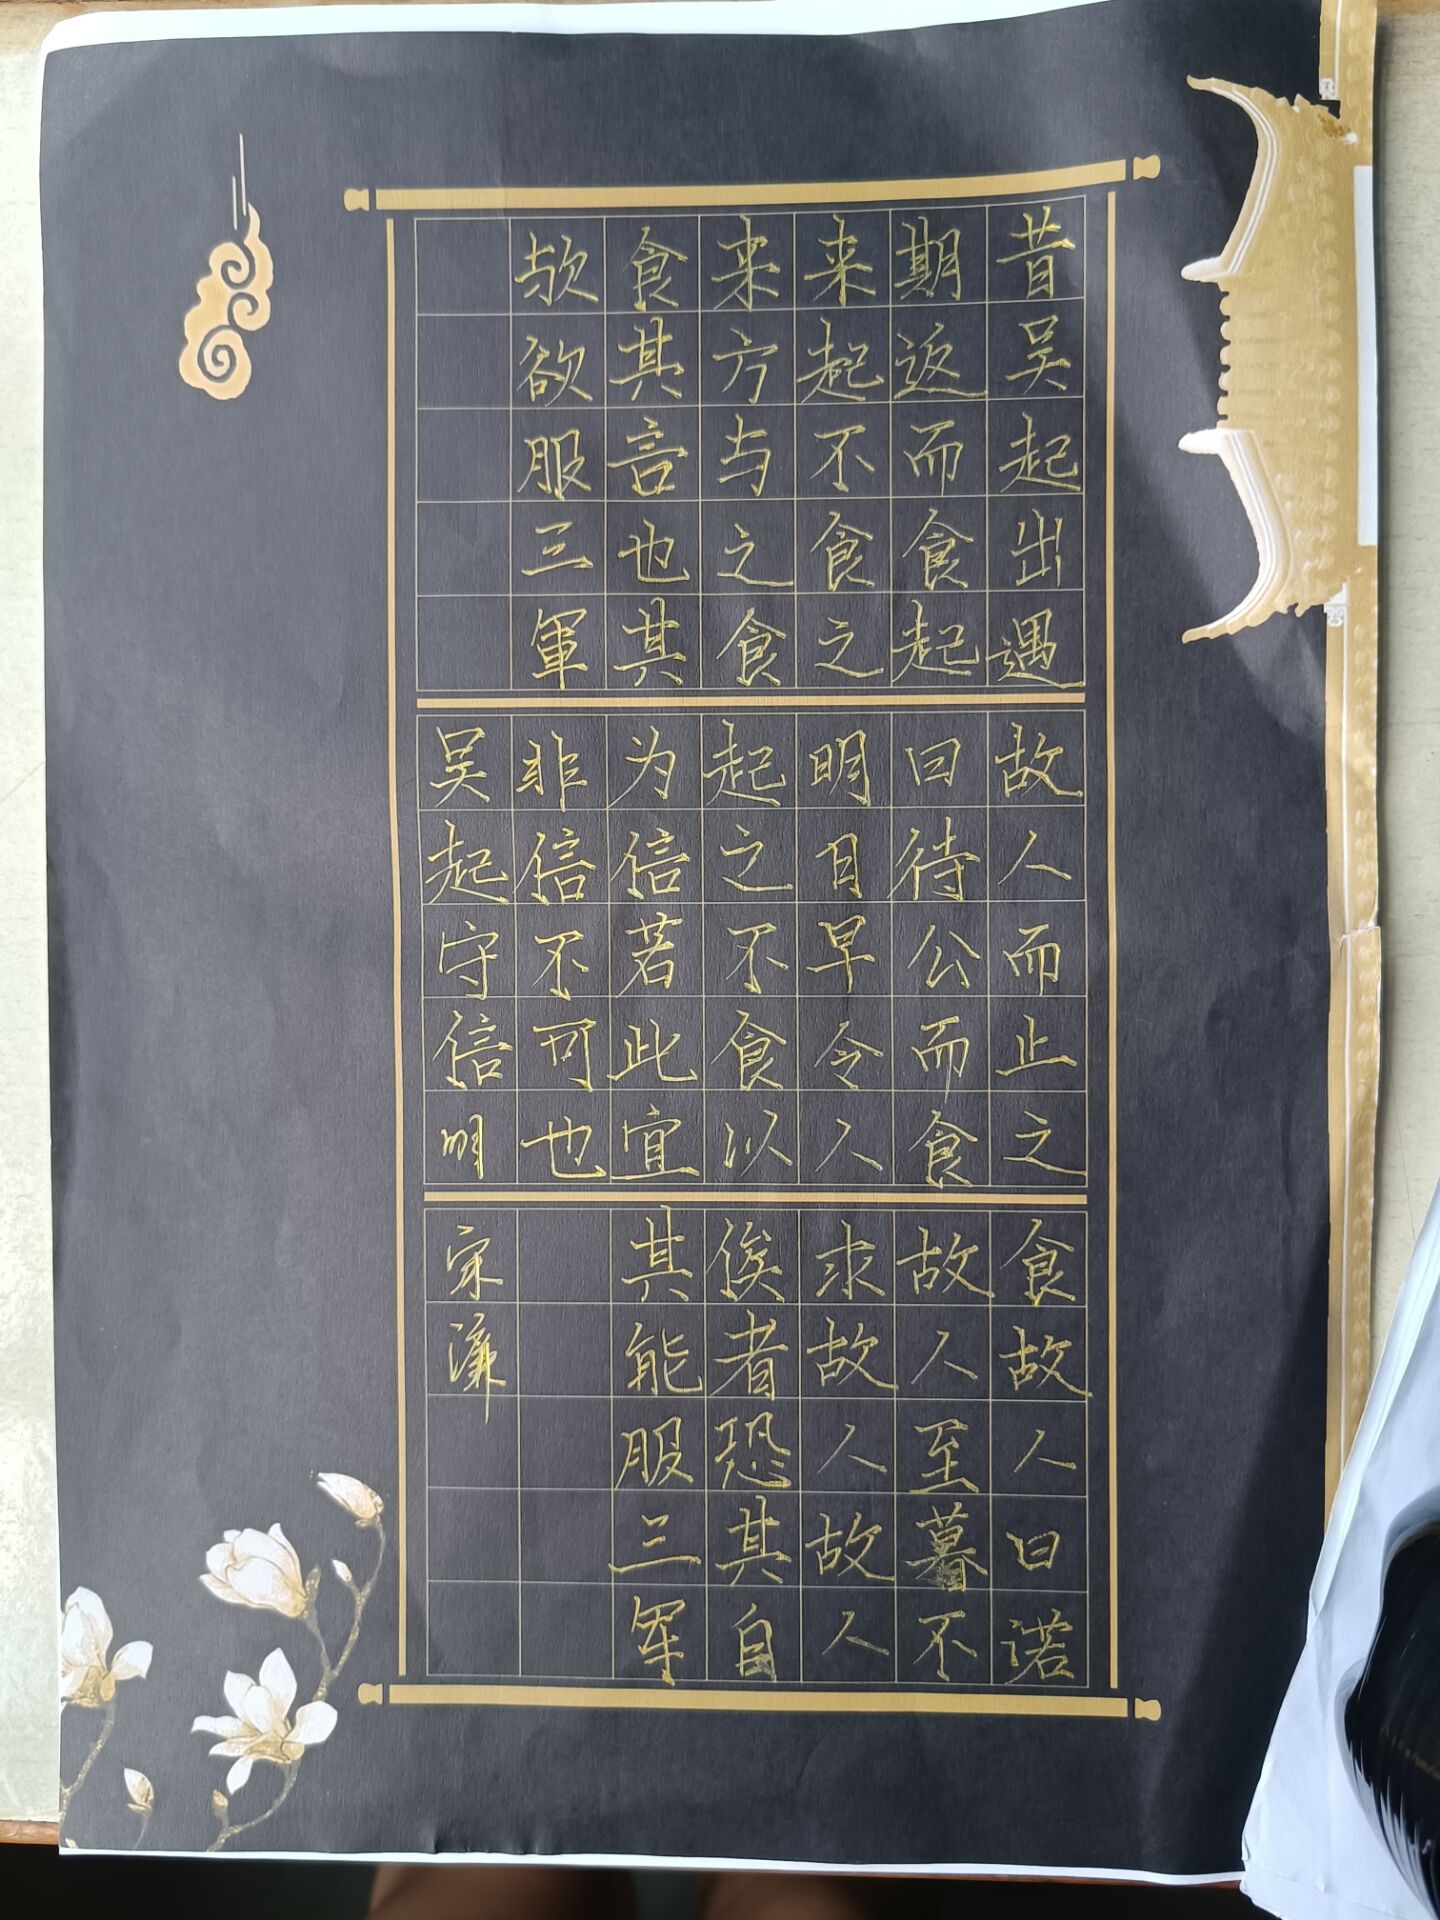 昔吴起出遇故人而止之食故人曰诺
期返而食起曰待公而食故人至暮不
来起不食之明日早令人求故人故人
来方与之食起之不食以俟者恐其自
食其言也其为信若此宜其能服三军
欤欲服三軍非信不可也
吴起守信明宋濂